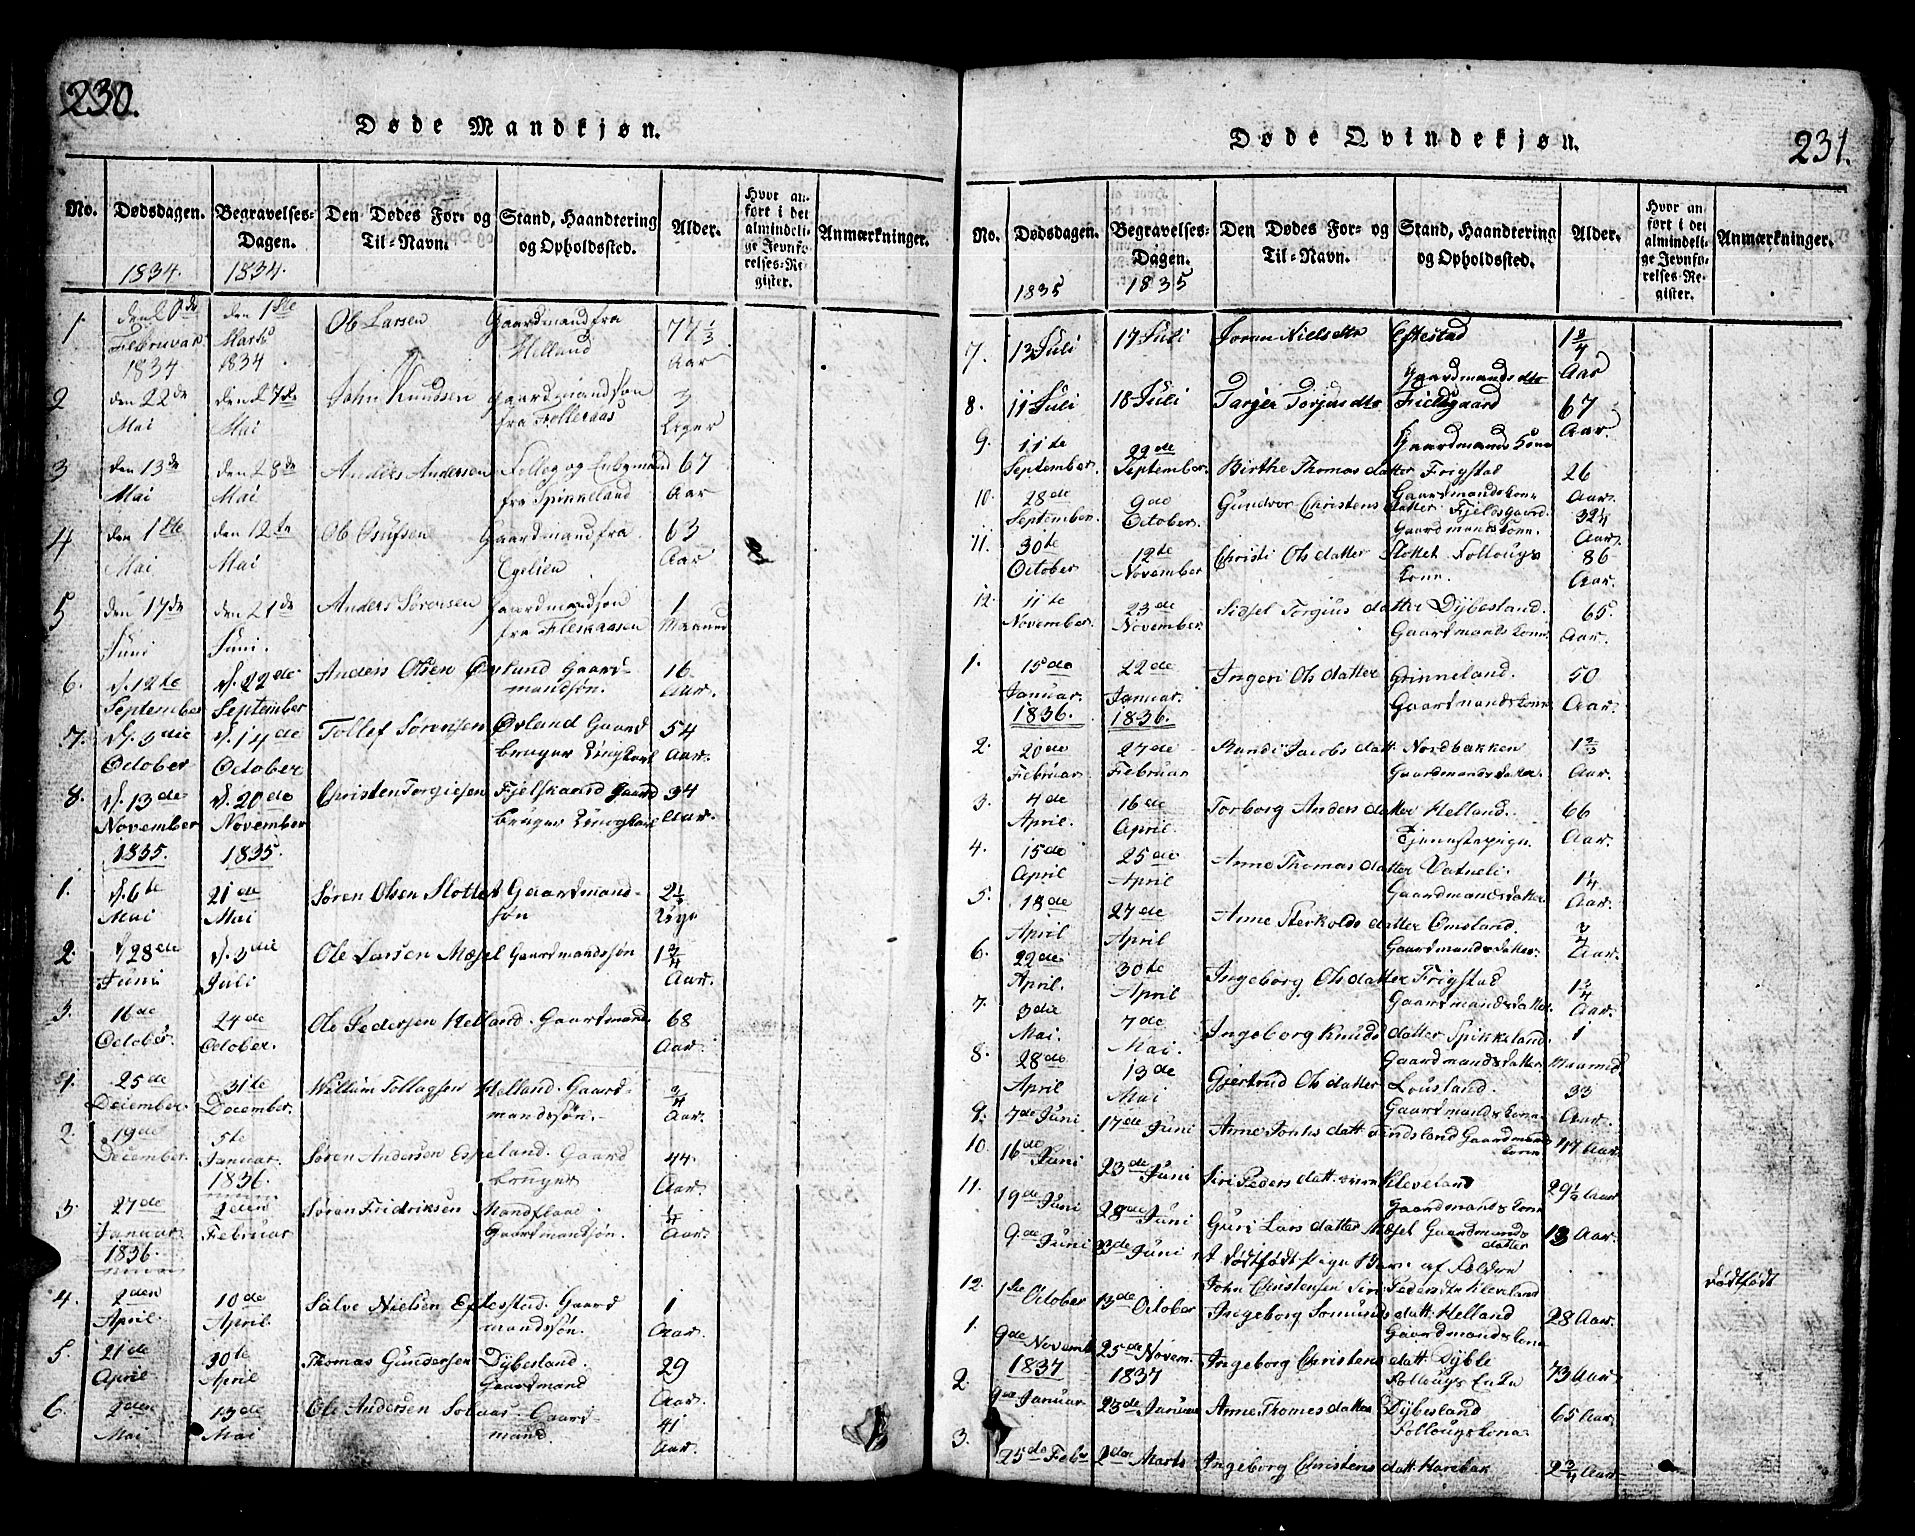 230.
Døde Mandkjøn.
No. Dødsdagen. Begravelses-Dagen. Den Dødes For- og Til-Navn. Stand, Haandtering og Opholdssted. Alder. Hvor anført i det almindelige Jevnførelses-Register. Anmærkninger.
1834. 1834.
1. den 20de Februar 1834 den 1ste Marts 1834. Ole Larsen Gaardmand fra Helland 77 1/3 Aar
2 den 22de Mai den 27de Mai John Knudsen Gaardmandsøn fra Folleraas 3 Uger
3 den 13de Mai den 28de Mai Anders Andersen fra Spikkeland 67 Aar
4 den 1ste Mai den 12te Mai Ole Gaardmand fra Egelien 63 Aar
5 den 17de Juni den 21de Juni. Anders Sørensen Gaardmandsøn fra Fleskaasen 1 Maaned
6. d. 12te September d. 22de September Anders Olsen Øvland Gaardmandsøn. 16 Aar.
7. d. 3die October d. 14de October Tollef Sørensen Øvland Gaard bruger 54 Aar.
8. d. 13de November d. 20de November Christen Torgiesen Fjelskaard Gaard bruger 34 Aar.
1835. 1835.
1. d. 6te Mai 21de Mai Søren Olsen Slottet Gaardmandsøn 2 1/2 Uge
2. d. 28de Juni d. 3die Juli Ole Larsen Mæsel Gaardmandssøn 1 3/4 Aar.
3. 16de October. 24de October. Ole Pedersen Helland. Gaardmand. 68 Aar.
1. 25de December. 31te December. Willum Tollagsen Helland. Gaardmandssøn. 3/4 Aar.
2. 19de December. 5te Januar. 1836. Søren Andersen Espeland. Gaard bruger 44. Aar.
3. 27de Januar. 1836. 2den Februar Søren Fridriksen Mandflaae. Gaardmandsøn. 1/4 Aar.
4. 2den April. 10de April. Salve Nielsen Eftestad. Gaard mandssøn. 1 Aar.
5. 21de April. 30te April Thomas Gundersen Dybesland. Gaardmand 29 Aar.
6. 2den Mai 13de Mai Ole Andersen Solaas Gaardmand. 41 Aar.
231.
Døde Qvindekjøn.
No. Dødsdagen. Begravelses-Dagen. Den Dødes For- og Til-Navn. Stand, Haandtering og Opholdssted. Alder. Hvor anført i det almindelige Jevnførelses-Register. Anmærkninger.
1835 1835
7. 13 Juli 17 Juli Joran Nielsdtr Eftestad Gaardmands dtr 1 3/4 Aar
8. 11 Juli 18 Juli Targer Torjus dtr Fieldsgaard Gaardmands Kone 67 Aar.
9. 11te September. 22de September. Birthe Thomas datter Frigstad Gaardmandskone 26 Aar.
10. 28de September. 9de October. Gundvor Christens datter Fjeldsgaard. Gaardmandskone. 32 1/4 Aar.
11. 30te October 12te November Christi Ols datter Slottet Follougs Kone. 86 Aar.
12. 11te November. 23de November. Sidsel Torgius datter Dybesland. Gaardmands kone. 65 Aar.
1. 15de Januar. 1836. 22de Januar. 1836. Ingeri Ols datter Grinneland. Gaardmandskone 50 Aar.
2. 20de Februar 27de Februar Randi Jacobs datt. Nordbakken Gaardmandsdatter. 1 2/3 Aar.
3. 4de April. 16de April. Torborg Anders datter Helland. Tjenestepige. 66 Aar.
4. 15de April 25de April Anne Thomas datter Vatneli. Gaardmandsdatter 1 1/4 Aar.
5. 18de April 27de April Anne Sterkolds datter Omsland. Gaardmandsdatter. 3/4 Aar.
6. 22de April. 30te April Ingeborg Ols datter Frigstad Gaardmandsdatter. 1 3/4 Aar.
7. 3die Mai. 7de Mai. Ingeborg Knuds datter Spikkeland. Gaardmandsdatter 1 Maaned
8. 28de April 13de Mai Gjertrud Ols datter Lousland. Gaardmandskone 33 Aar.
9. 7de Juni 17de Juni Anne datt. Findsland Gaardmands kone 47 Aar.
10. 16de Juni 23de Juni Siri Peders datt. Kleveland Gaardmandskone 29 1/2 Aar
11. 19de Juni 28de Juni Guri Lars datter Mæsel Gaardmands datter 13 Aar.
9de Juni 23de Juni et dødfødt Pige Barn af Foldrn John Christensen Siri Pedersdtr Kleveland dødfødt
12. 1ste October 13de October Ingeborg Somunds datt. Helland Gaardmandskone 28 Aar.
1. 9de Novemb 25de Novem. Ingeborg Christens datt. Dyble Follougs Enke 73 Aar
1837 1837
2. 9de Januar 23de Januar Anne Thomes datter Dybesland Follougskone 65 Aar.
3. 25de Febr 2den Marts Ingeborg Christens datt. Harebak 2 3/4 Aar.